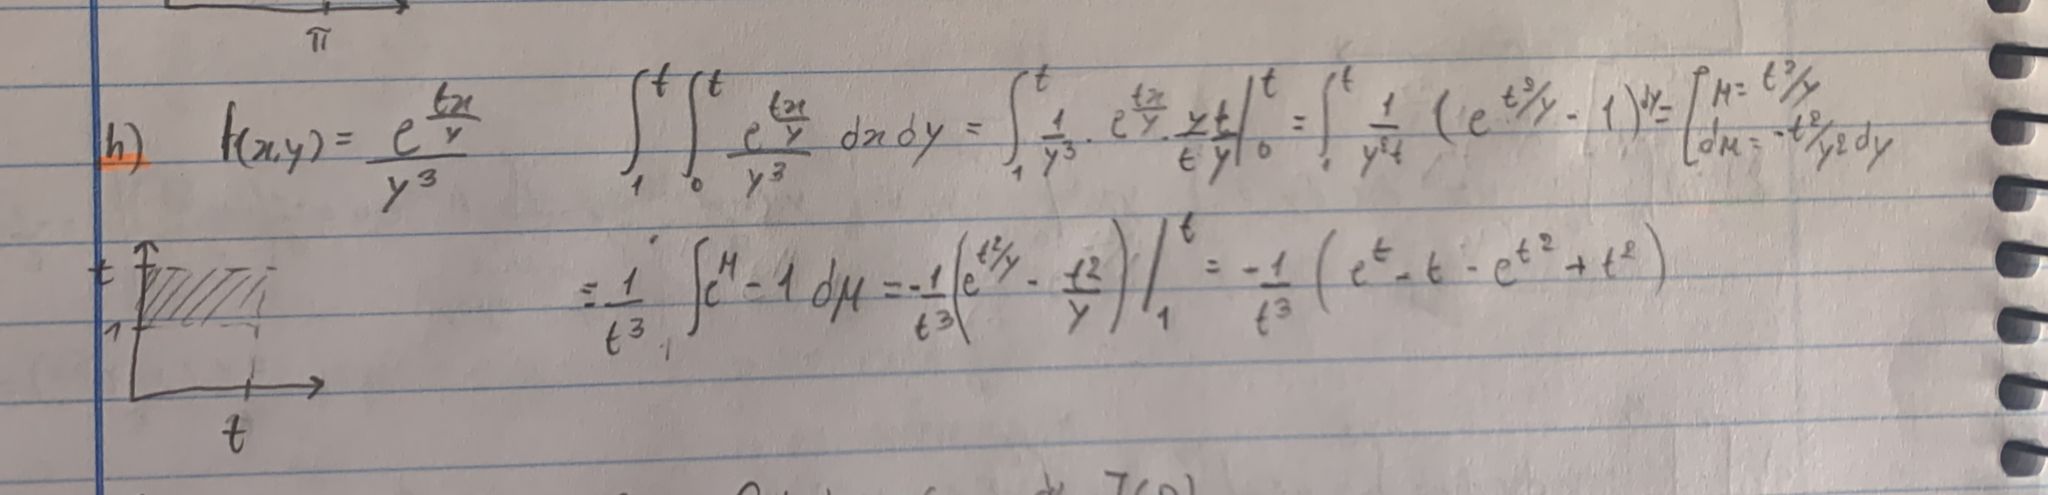 π
h) f(x,y) = e^{tx/y} / y³ ∫₁ᵗ ∫₀ᵗ e^{tx/y} / y³ dx dy = ∫₁ᵗ 1/y³ · e^{tx/y} · y/t t/y |₀ᵗ = ∫₁ᵗ 1/(y²t) (e^{t²/y} - 1) dy = [μ = t²/y
dμ = -t²/y² dy
= 1/t³ ∫ e^μ - 1 dμ = -1/t³ (e^{t²/y} - t²/y) |₁ᵗ = -1/t³ (e^t - t - e^{t²} + t²)
t
1
t